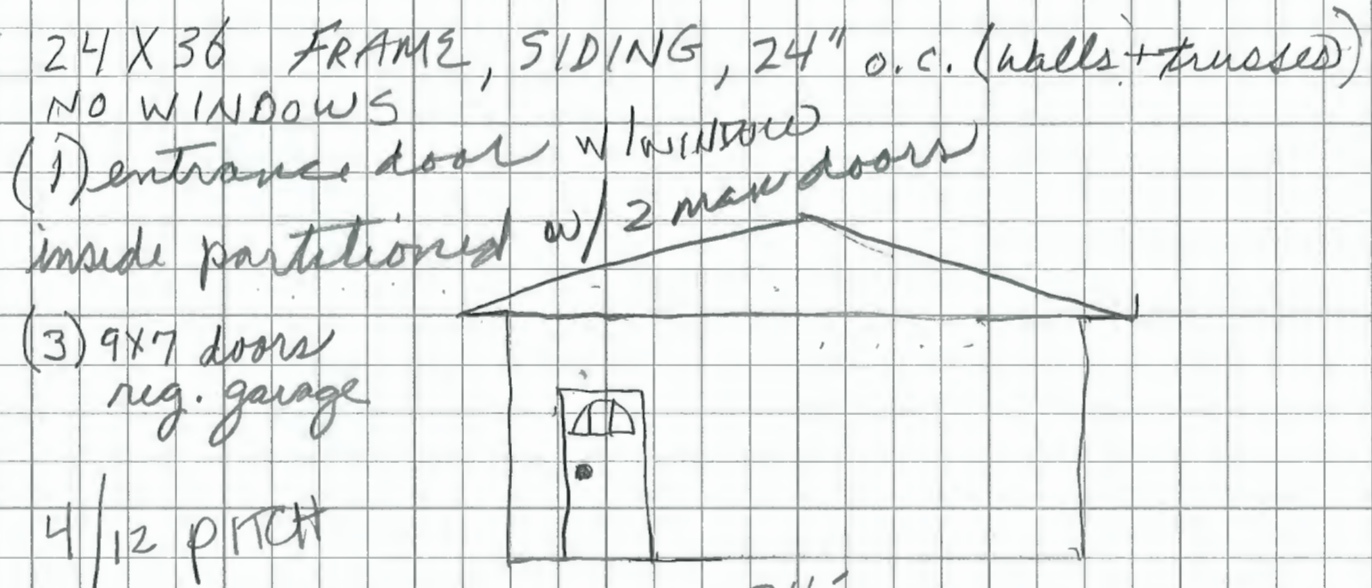 24 X 36 FRAME, SIDING, 24" o.c. (walls + trusses)
NO WINDOWS
(1) entrance door w/WINDOW
inside partitioned w/ 2 man doors
(3) 9x7 doors
reg. garage
4/12 PITCH